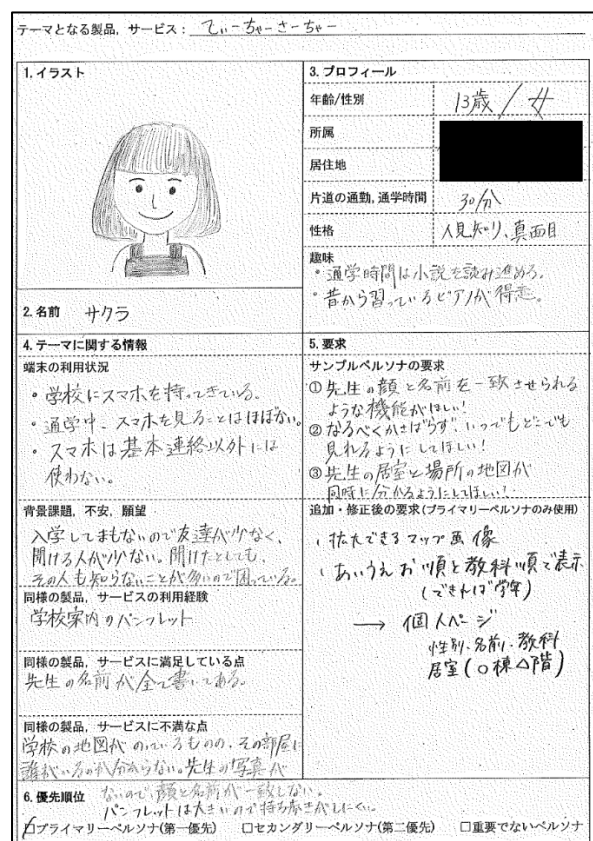 テーマとなる製品，サービス： てぃーちゃーさーちゃー
1. イラスト
2. 名前 サクラ
3. プロフィール
年齢/性別 13歳 / 女
所属
居住地
片道の通勤, 通学時間 30分
性格 人見知り、真面目
趣味
・通学時間は小説を読み進める。
・昔から習っているピアノが得意。
4. テーマに関する情報
端末の利用状況
・学校にスマホを持ってきている。
・通学中、スマホを見ることはほぼない。
・スマホは基本連絡以外には
使わない。
背景課題，不安，願望
入学してまもないので友達が少なく、
聞ける人が少ない。聞けたとしても、
その人も知らないことが多いので困っている。
同様の製品，サービスの利用経験
学校案内のパンフレット
同様の製品，サービスに満足している点
先生の名前が全て書いてある。
同様の製品，サービスに不満な点
学校の地図がのっているものの、その部屋に
誰がいるのか分からない。先生の写真が
ないので、顔と名前が一致しない。
パンフレットは大きいので持ち歩きがしにくい。
5. 要求
サンプルペルソナの要求
① 先生の顔と名前を一致させられる
ような機能がほしい！
② なるべくかさばらず、いつでもどこでも
見れるようにしてほしい！
③ 先生の居室と場所の地図が
同時に分かるようにしてほしい！
追加・修正後の要求(プライマリーペルソナのみ使用)
・拡大できるマップ画像
・あいうえお順と教科順で表示
(できれば学年)
→ 個人ページ
性別・名前・教科
居室(○棟△階)
6. 優先順位
☑プライマリーペルソナ(第一優先) □セカンダリーペルソナ(第二優先) □重要でないペルソナ